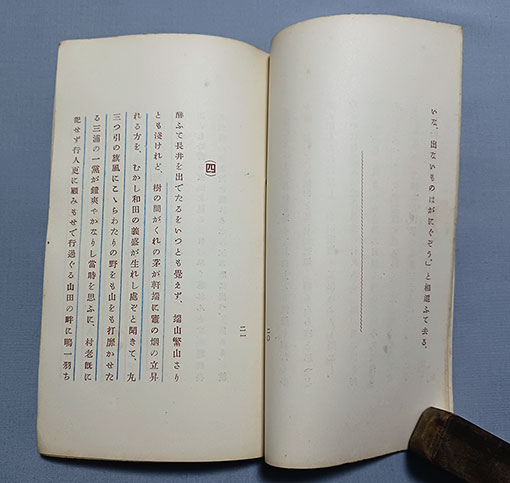 いな、出ないものはがにぐぞう。」と相連ふて去る。
二〇
(四)
酔ふて長井を出でたるをいつとも覚えず、端山繁山さり
とも淺けれど、樹の間がくれの茅が軒端に竈の烟の立昇
れる方を、むかし和田の義盛が生れし處ぞと聞きて、丸
三つ引の旗風にこゝらわたりの野をも山をも打靡かせた
る三浦の一黨が鎧爽やかなりし當時を思ふに、村老既に
死せず行人更に顧みもせで行過ぐる山田の畔に鴫一羽ち
二一